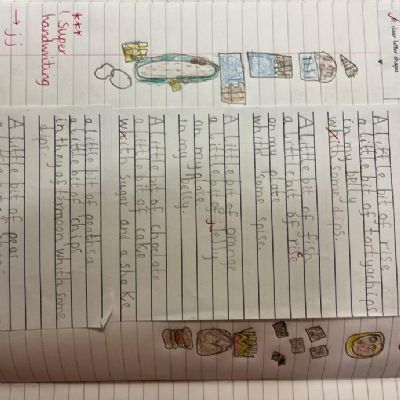 clear letter shapes
A little bit of rise
a little bit of tortyachips
in my belly
with some dips.
A little bit of fish
a little bit of rise
on my plate
whith some spise.
A little bit of orange
a little bit of jelly
on my plate
in my belly.
A little bit of choclate
a little bit of cake
with sugar and a shake
a little bit of
a little bit of chips
in the yafternoon whith some
dips.
A little bit of pear
***
! super
handwriting
→ jj